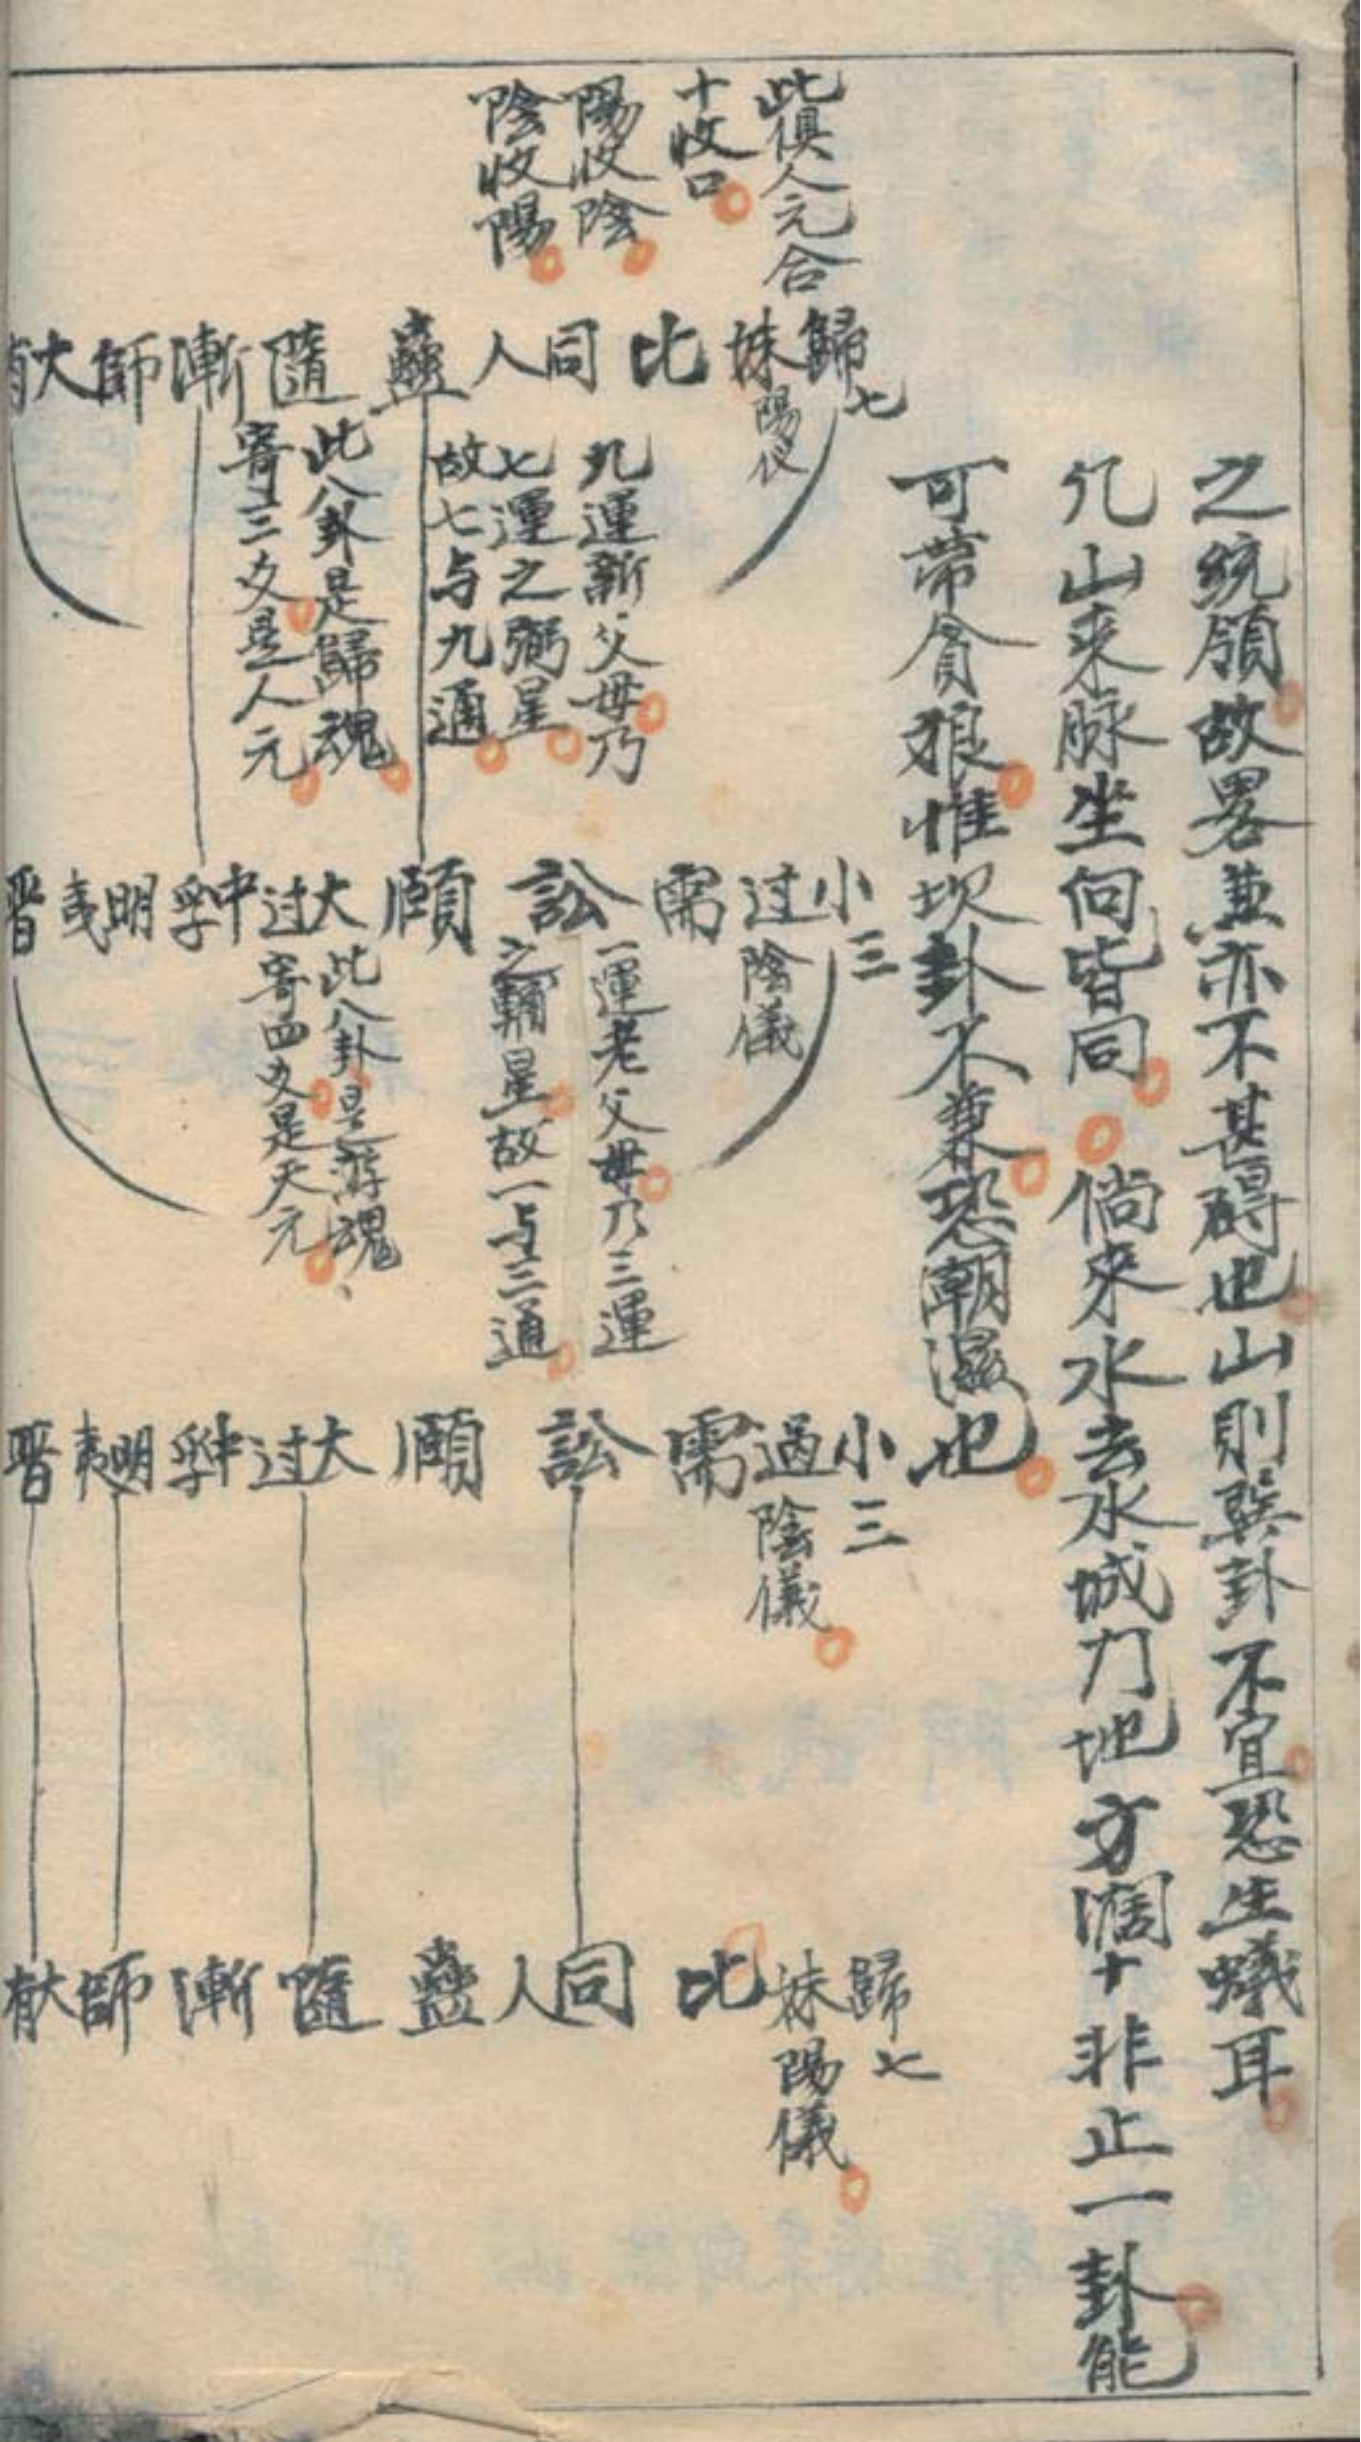 之統領故畧兼亦不甚碍也山則巽卦不宜恐生蟻耳
凡山来脉坐向皆同倘來水去水城门地方濶大非止一卦能
可帶貪狼惟坎卦不兼恐潮濕也
此俱人元合
十收口
陽收陰
陰收陽
歸妹 比 同人 蠱 隨 漸 師 大有
七
陽仪
九運新父母乃
七運之弼星
故七与九通
此八卦是歸魂
寄三爻是人元
小过 需 訟 頤 大过 中孚 明夷 晋
三
陰儀
一運老父母乃三運
之輔星故一与三通
此八卦是游魂
寄四爻是天元
小過 需 訟 頤 大过 中孚 明夷 晋
三
陰儀
歸妹 比 同人 蠱 隨 漸 師 大有
七
陽儀